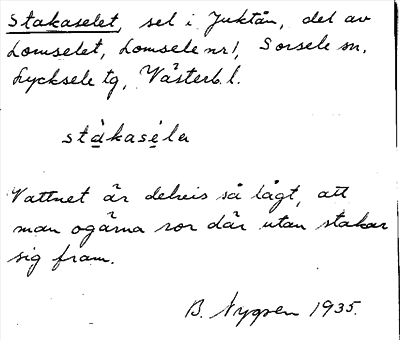 Stakaselet, sel i Juktån, del av
Lomselet, Lomsele nr 1, Sorsele sn.
Lycksele tg, Västerb. l.
stàkasélɐ
Vattnet är delvis så lågt, att
man ogärna ror där utan stakar
sig fram.
B. Nygren 1935.